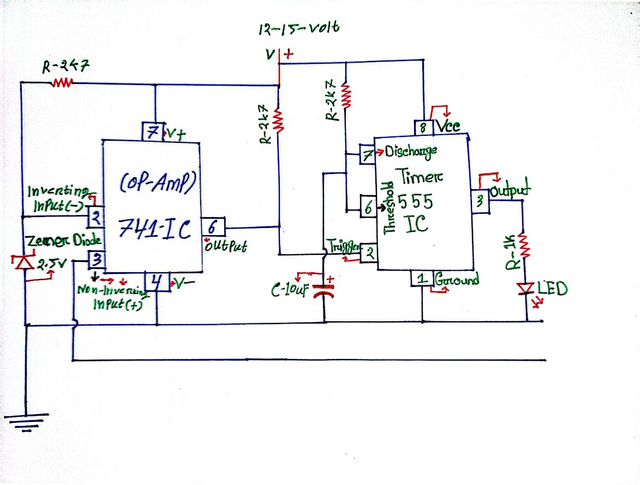 12-15-volt
V +
R-2k7
R-2k7
R-2k7
7 V+
8 Vcc
(OP-AMP)
741-IC
7 Discharge
Timer
555
IC
Threshold
6
Inverting
Input(-)
2
3 Output
6
Output
Zener Diode
2.5V
3
Non-Inverting
Input(+)
4 V-
Trigger
2
1 Ground
R-1k
C-10uF
+
LED